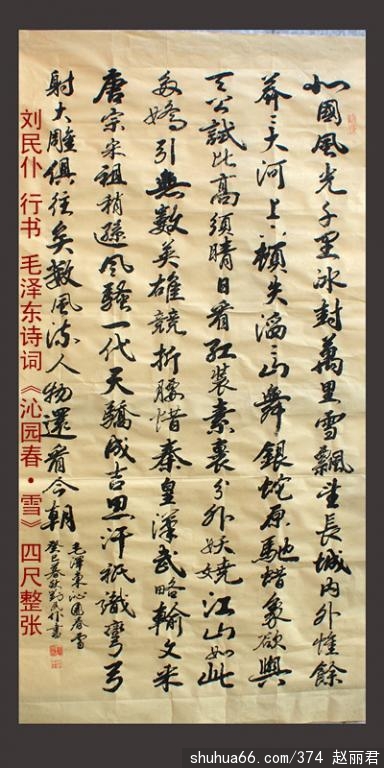 北國風光千里冰封萬里雪飄望長城内外惟餘
莽〻大河上下頓失滔〻山舞銀蛇原馳蜡象欲與
天公試比高須晴日看红装素裹分外妖娆江山如此
多嬌引無數英雄競折腰惜秦皇漢武略輸文采
唐宗宋祖稍遜風騷一代天驕成吉思汗祇識彎弓
射大雕俱往矣數風流人物還看今朝
毛澤東沁園春雪
癸巳春劉民仆書
刘民仆 行书 毛泽东诗词《沁园春·雪》四尺整张
shuhua66.com/374 赵丽君